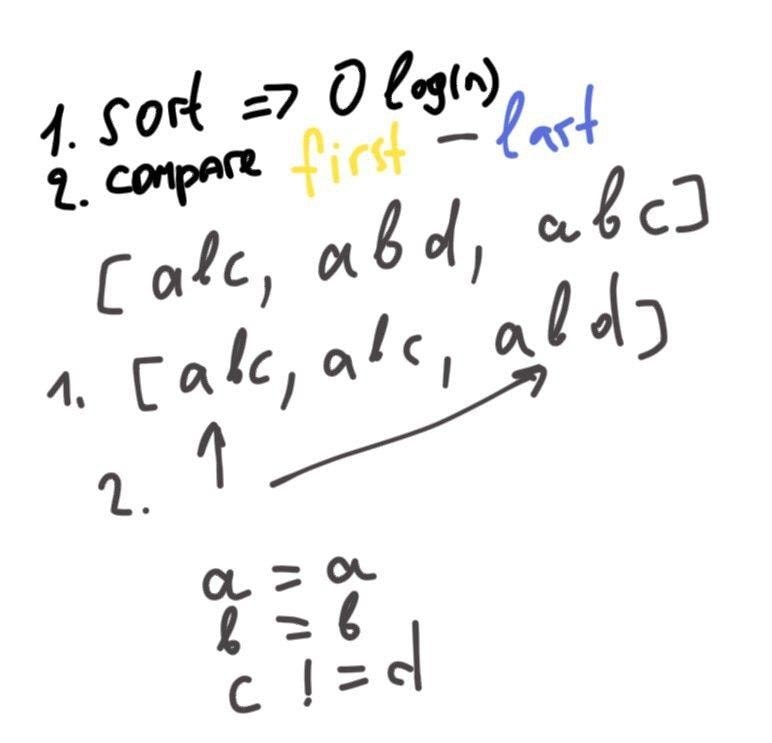 1. sort => O log(n)
2. compare first - last
[abc, abd, abc]
1. [abc, abc, abd]
2.
a = a
b = b
c != d